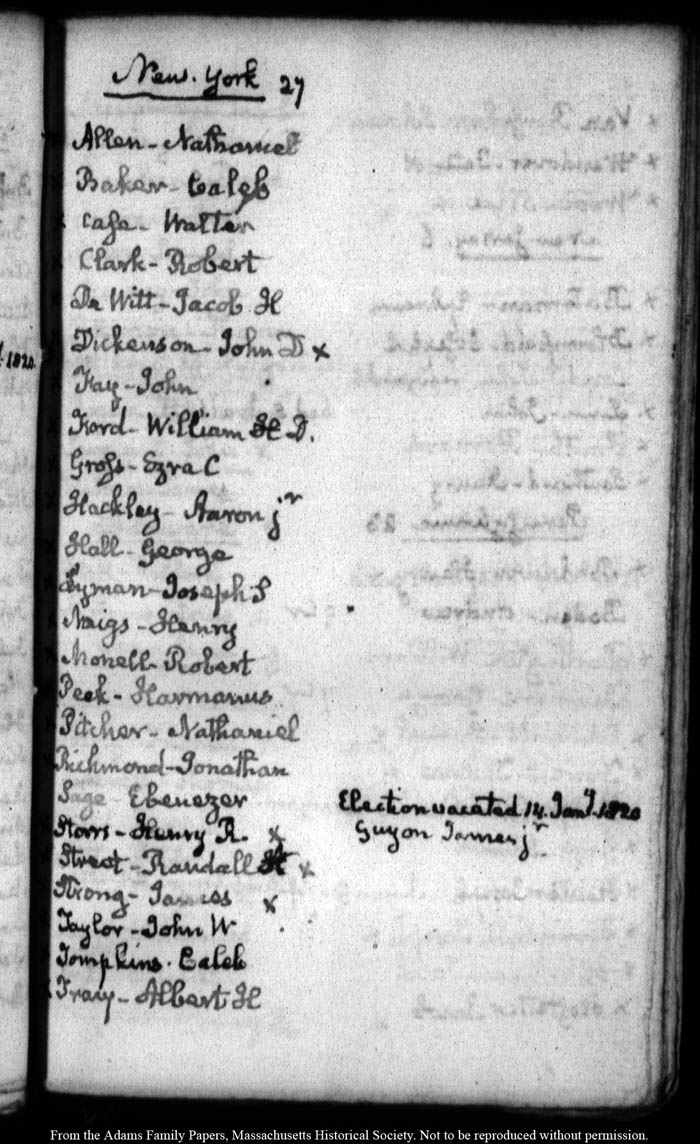 New. York 27
Allen - Nathaniel
Baker - Caleb
Case - Walter
Clark - Robert
De Witt - Jacob H
Dickenson - John D x
Fay - John
Ford - William H D.
Gross - Ezra C
Hackley - Aaron jr
Hall - George
Lyman - Joseph S
Meigs - Henry
Monell - Robert
Peek - Harmanus
Pitcher - Nathaniel
Richmond - Jonathan
Sage - Ebenezer Election vacated 14. Jany. 1820
Storrs - Henry R. x Guyon James jr
Street - Randall x
Strong - James x
Taylor - John W
Tompkins. Caleb
Tracy - Albert H
1820
From the Adams Family Papers, Massachusetts Historical Society. Not to be reproduced without permission.